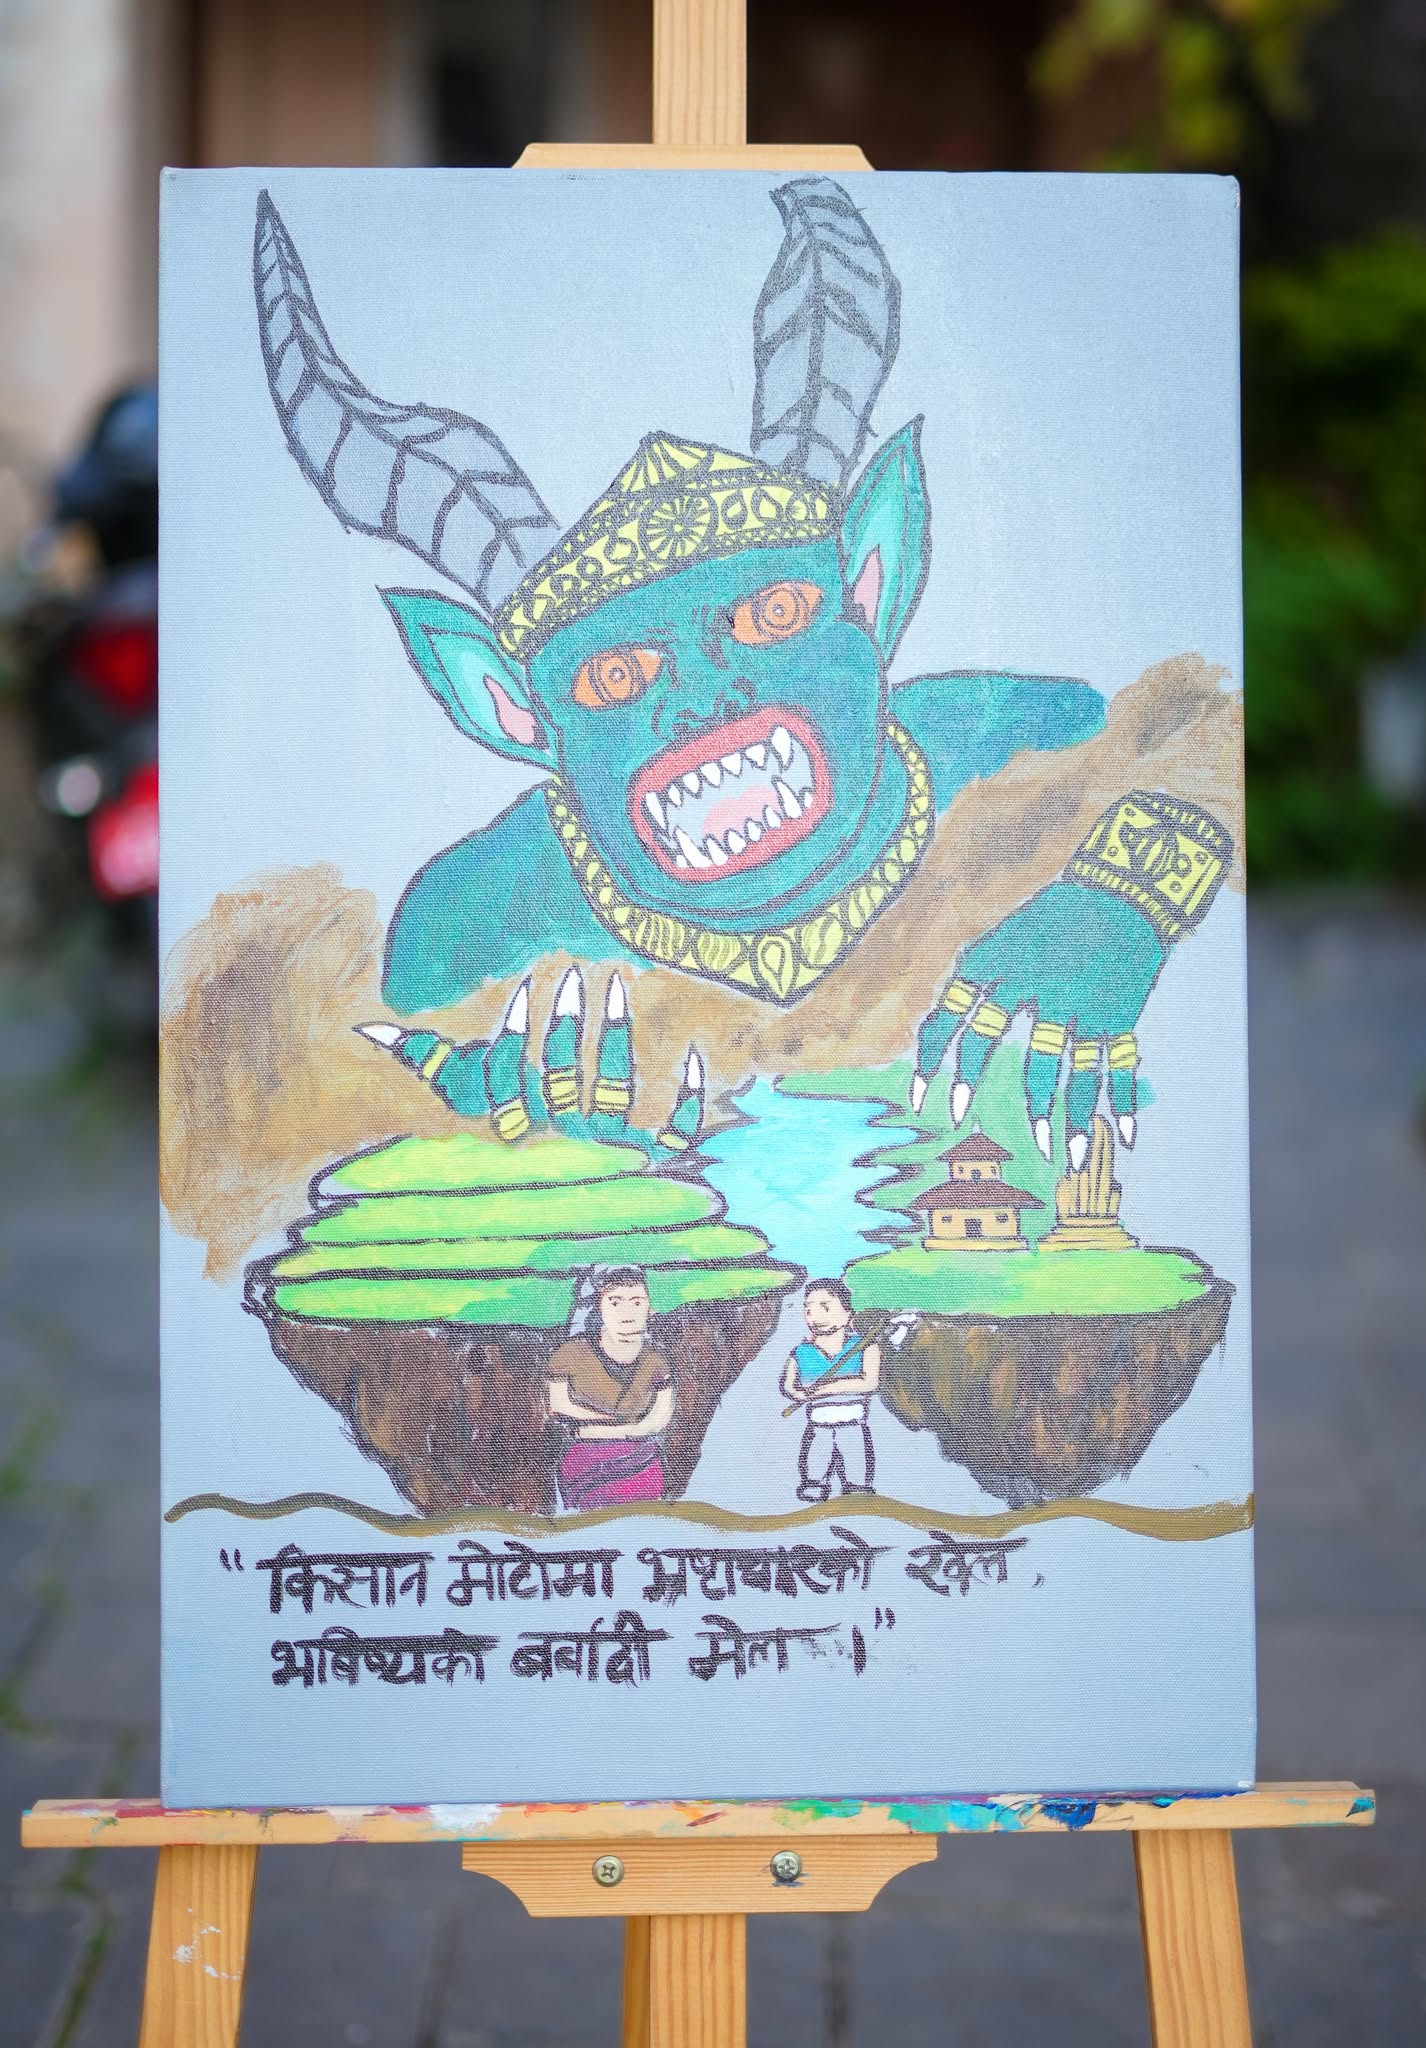 "किसान मोटोमा भ्रष्टाचारको खेल,
भविष्यको बर्बादी मेल ।"